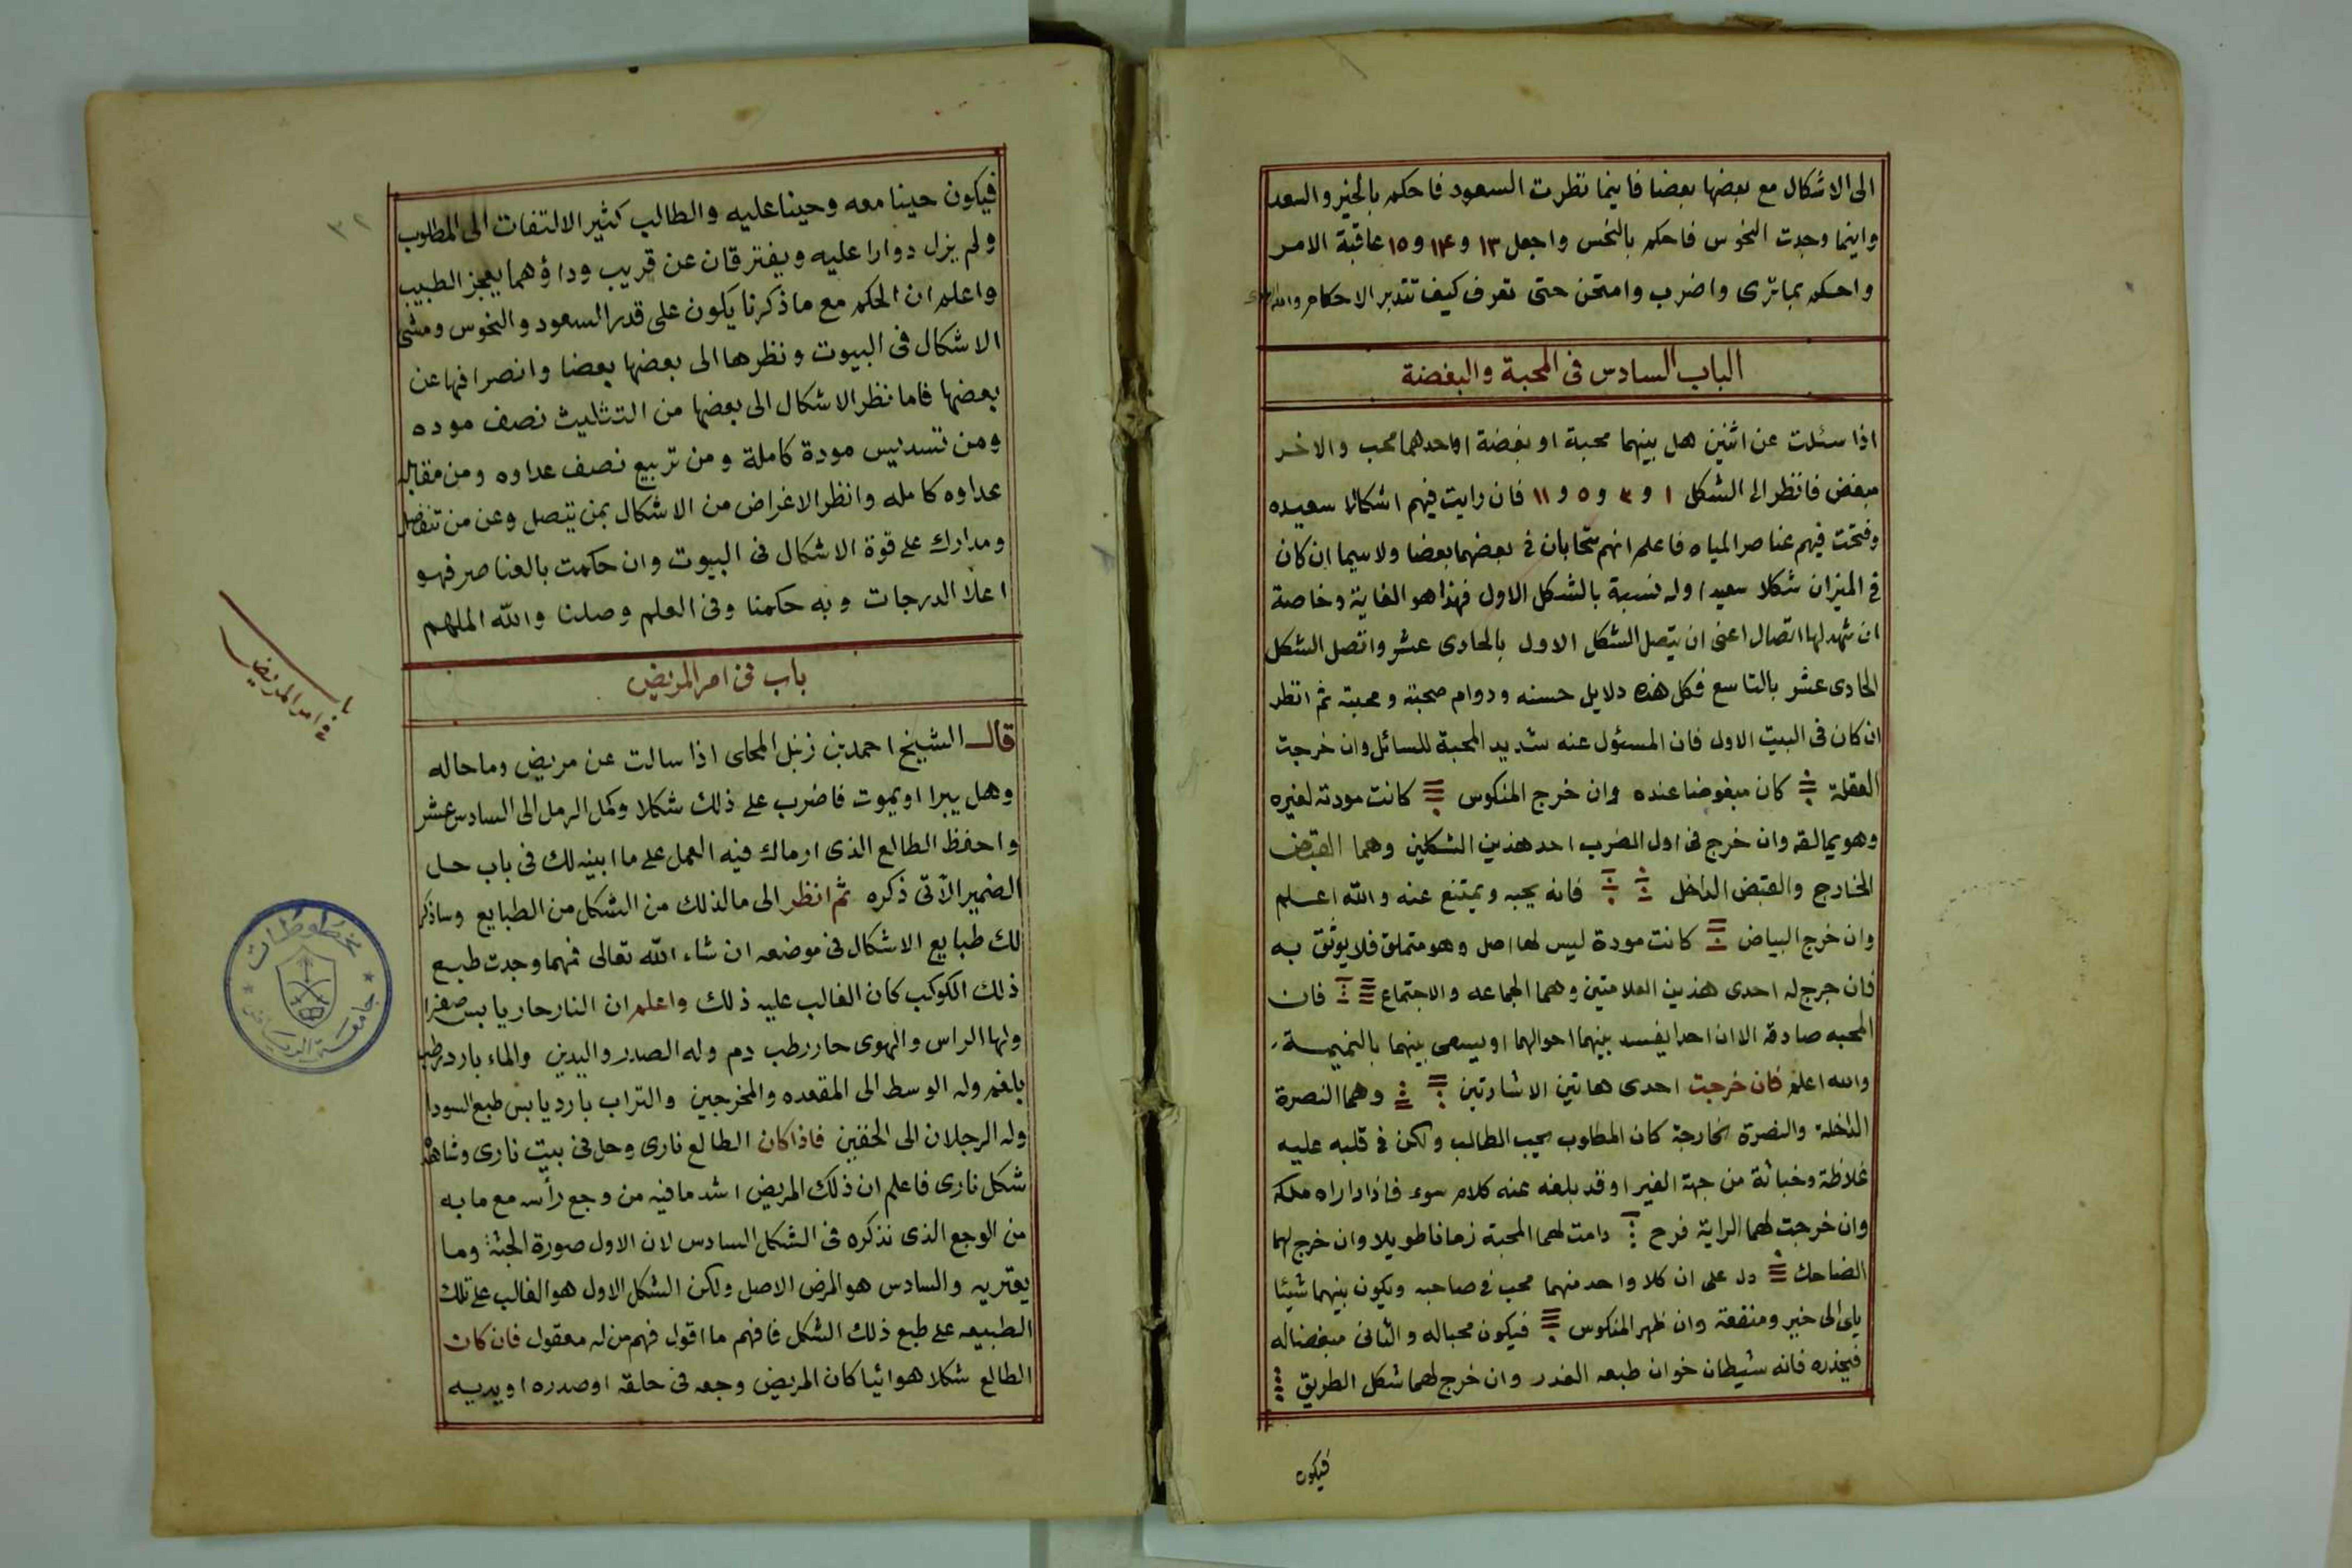 الى الاشكال مع بعضها بعضا فاينما نظرت السعود فاحكم بالخير والسعد
واينما وجدت النحوس فاحكم بالنحس واجعل ١٣ و ١۴ و ١٥ عاقبة الامر
واحكم بماترى واضرب وامتحن حتى تعرف كيف تتدبر الاحكام والله
الباب السادس فى المحبة والبغضة
اذا سئلت عن اثنين هل بينهما محبة او بغضة او احدهما محب والاخر
مبغض فانظر الى الشكل ١ و ٣ و ٥ و ١١ فان رايت فيهم اشكالا سعيده
وفتحت فيهم عناصر المياه فاعلم انهم متحابان فى بعضهما بعضا ولاسيما ان كان
فى الميزان شكلا سعيدا وله نسبة بالشكل الاول فهذا هو الغاية وخاصة
ان شهد لها اتصال اعنى ان يتصل الشكل الاول بالحادى عشر واتصل الشكل
الحادى عشر بالتاسع فكل هذه دلايل حسنه ودوام صحبة ومحبته ثم انظر
ان كان فى البيت الاول فان المسئول عنه شديد المحبة للسائل وان خرجت
العقلة كان مبغوضا عنده وان خرج المنكوس كانت مودته لغيره
وهو يمالقه وان خرج فى اول الضرب احد هذين الشكلين وهما القبض
الخارج والقبض الداخل فانه يحبه ويمتنع عنه والله اعلم
وان خرج البياض كانت مودة ليس لها اصل وهو متملق فلا يوثق به
فان خرج له احدى هذين العلامتين وهما الجماعه والاجتماع فان
المحبه صادقه الا ان احدا يفسد بينهما احوالهما او يسعى بينهما بالنميمة
والله اعلم فان خرجت احدى هاتين الاشارتين وهما النصرة
الداخلة والنصرة الخارجة كان المطلوب يحب الطالب ولكن فى قلبه عليه
غلاظة وخباثة من جهة الغير او قد بلغه عنه كلام سوء فاذا اراه ملكه
وان خرجت لهما الراية فرح دامت لهما المحبة زمانا طويلا وان خرج لهما
الضاحك دل على ان كلا واحد منهما محب فى صاحبه ويكون بينهما شيئا
ياى الى خير ومنفعة وان ظهر المنكوس فيكون محبا له والثانى مبغضا له
فيحذره فانه شيطان خوان طبعه الغدر وان خرج لهما شكل الطريق
فيكون
٣٢
فيكون حينا معه وحينا عليه والطالب كثير الالتفات الى المطلوب
ولم يزل دوارا عليه ويفترقان عن قريب وداؤهما يعجز الطبيب
واعلم ان الحكم مع ما ذكرنا يكون على قدر السعود والنحوس ومشى
الاشكال فى البيوت ونظرها الى بعضها بعضا وانصرافها عن
بعضها فاما نظر الاشكال الى بعضها من التثليث نصف موده
ومن تسديس مودة كاملة ومن تربيع نصف عداوه ومن مقابله
عداوه كامله وانظر الاغراض من الاشكال بمن يتصل وعن من تنفصل
ومدارك على قوة الاشكال فى البيوت وان حكمت بالعناصر فهو
اعلا الدرجات وبه حكمنا وفى العلم وصلنا والله الملهم
باب فى امر المريض
باب
فى امر المريض
قال الشيخ احمد بن زنبل المحلى اذا سالت عن مريض وما حاله
وهل يبرا او يموت فاضرب على ذلك شكلا وكمل الرمل الى السادس عشر
واحفظ الطالع الذى ارماك فيه العمل على ما ابينه لك فى باب حل
الضمير الآتى ذكره ثم انظر الى ما لذلك من الشكل من الطبايع وساذكر
لك طبايع الاشكال فى موضعه ان شاء الله تعالى فمهما وجدت طبع
ذلك الكوكب كان الغالب عليه ذلك واعلم ان النار حار يابس صفرا
ولها الراس والهوى حار رطب دم وله الصدر واليدين والماء بارد رطب
بلغم وله الوسط الى المقعده والمخرجين والتراب بارد يابس طبع السودا
وله الرجلان الى الخفين فاذا كان الطالع نارى وحل فى بيت نارى وشاهد
شكل نارى فاعلم ان ذلك المريض اشد ما فيه من وجع رأسه مع ما به
من الوجع الذى نذكره فى الشكل السادس لان الاول صورة الجثة وما
يعتريه والسادس هو المرض الاصل ولكن الشكل الاول هو الغالب على تلك
الطبيعه على طبع ذلك الشكل فافهم ما اقول فهم من له معقول فان كان
الطالع شكلا هوائيا كان المريض وجعه فى حلقه او صدره او يديه
مخطوطات
جامعة الرياض